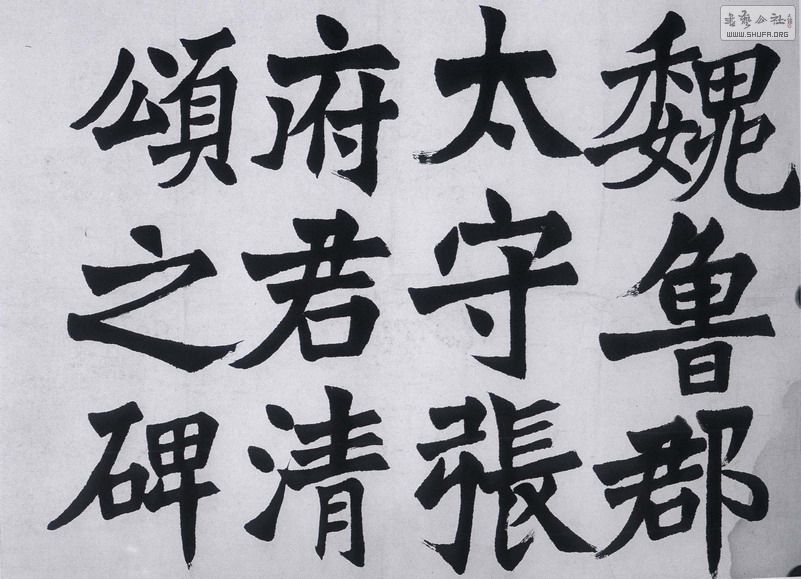 魏魯郡
太守張
府君清
頌之碑
書藝公社
WWW.SHUFA.ORG